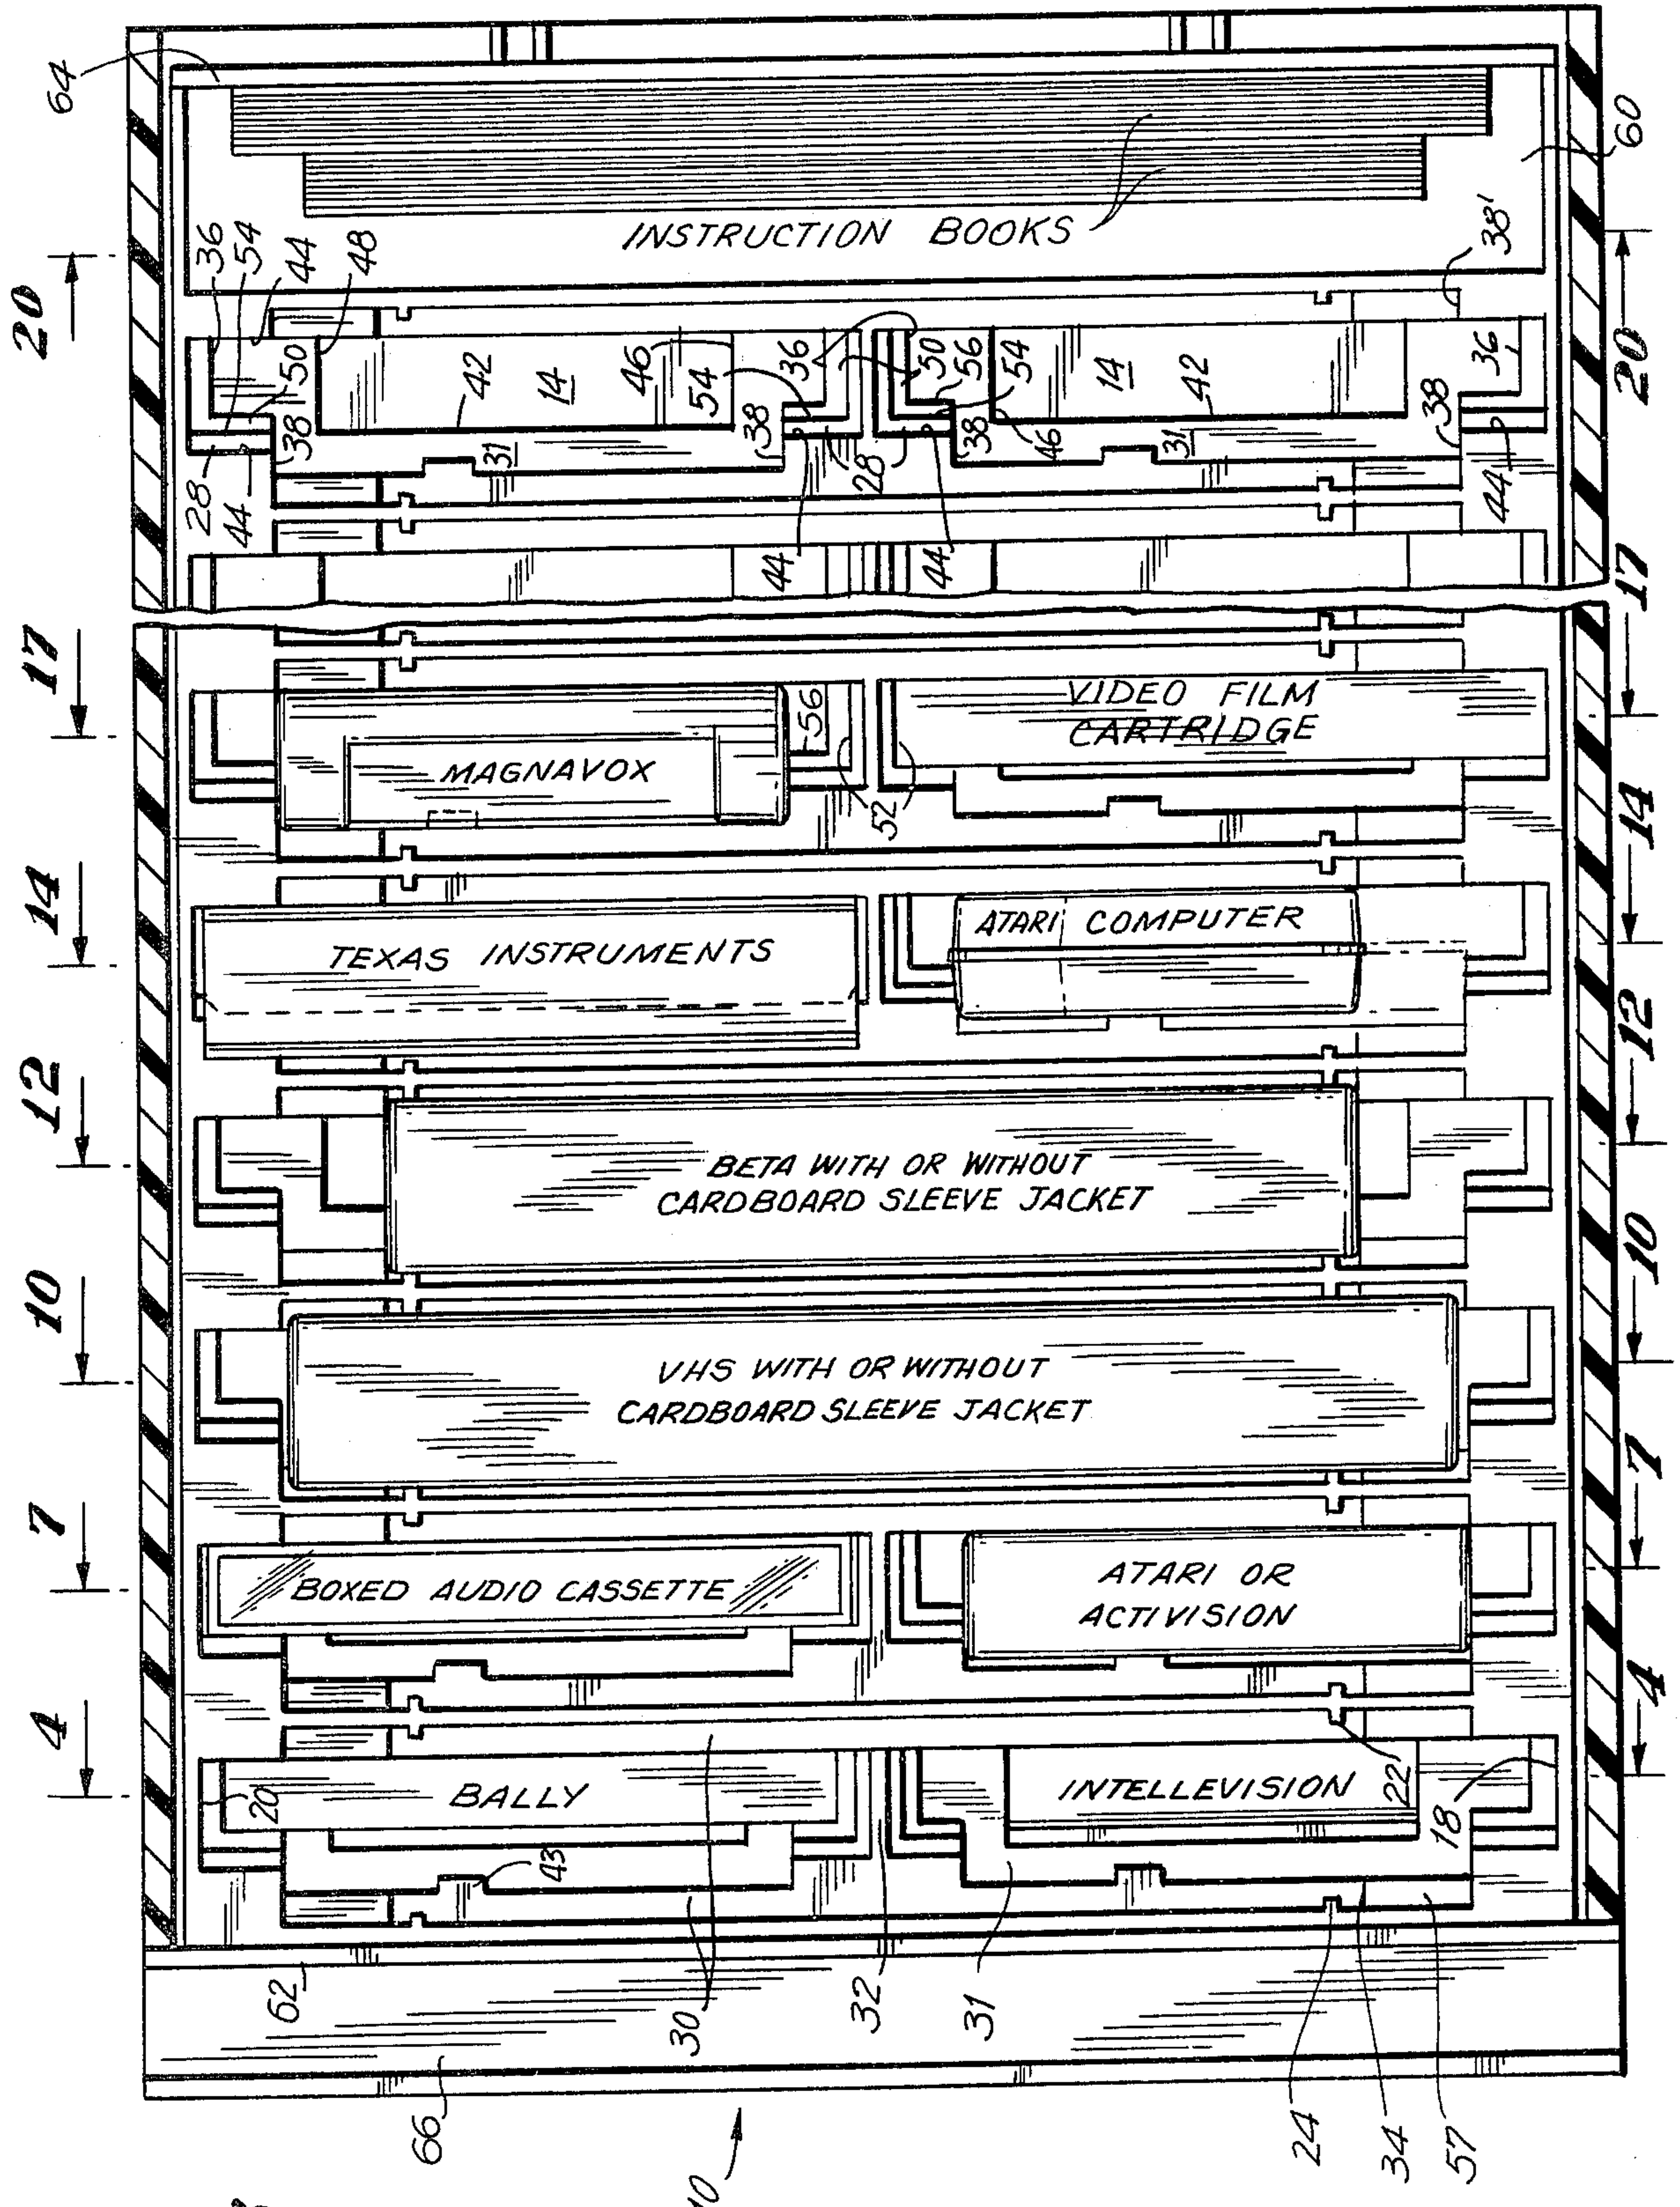 64
INSTRUCTION BOOKS
60
20
36
54
44
48
38'
50
42
14
46
54
36
50
56
54
14
42
36
20
38
38
38
46
38
28
44
31
28
31
44
44
44
17
17
MAGNAVOX
56
52
VIDEO FILM
CARTRIDGE
14
14
TEXAS INSTRUMENTS
ATARI COMPUTER
12
12
BETA WITH OR WITHOUT
CARDBOARD SLEEVE JACKET
10
10
VHS WITH OR WITHOUT
CARDBOARD SLEEVE JACKET
7
7
BOXED AUDIO CASSETTE
ATARI OR
ACTIVISION
4
4
20
BALLY
INTELLEVISION
22
18
43
62
30
32
31
66
24
34
57